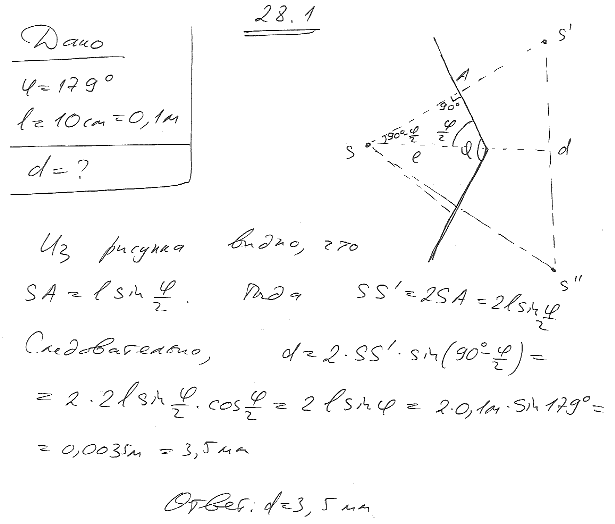 28.1
Дано
φ=179°
l=10см=0,1м
d=?
S'
A
90°
90°-φ/2
φ/2
S
l
φ
d
S"
Из рисунка видно, что
SA = l sin φ/2. Тогда SS' = 2SA = 2l sin φ/2
Следовательно, d = 2·SS'·sin(90°-φ/2) =
= 2·2l sin φ/2 · cos φ/2 = 2l sin φ = 2·0,1м·sin179° =
= 0,0035м = 3,5мм
Ответ: d=3,5 мм